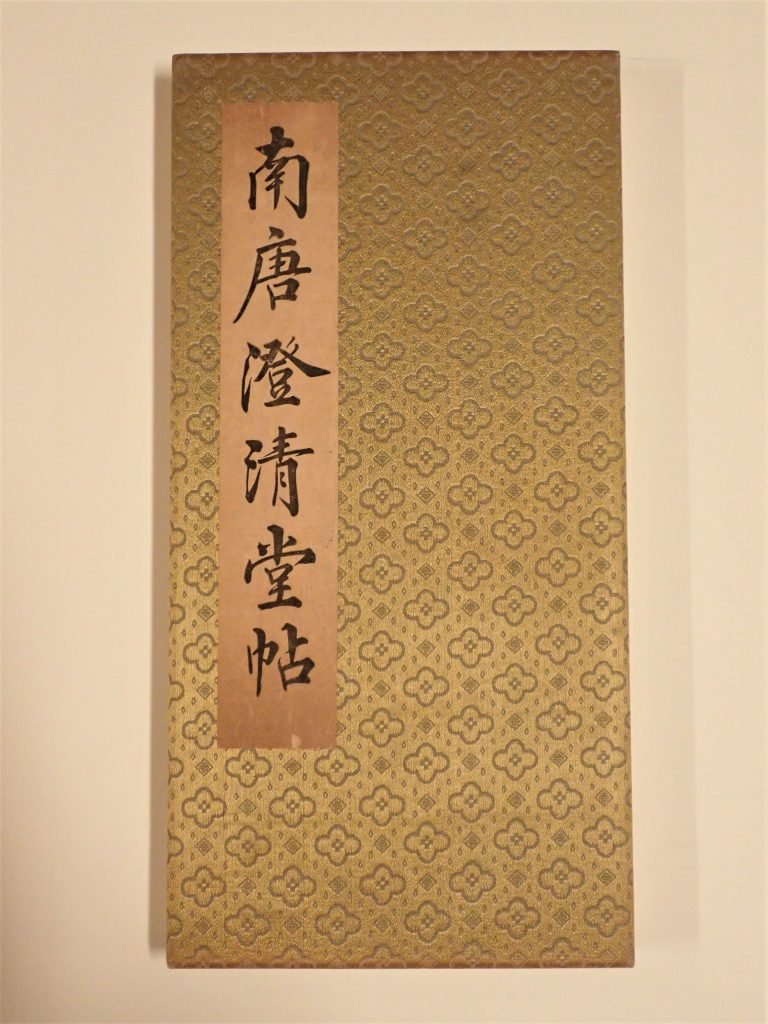 南唐澄清堂帖